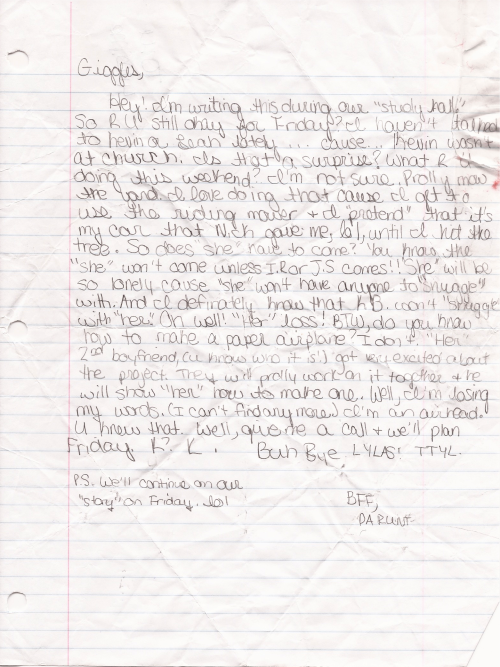 Giggles,
Hey! I'm writing this during our "study hall"
So R U still okay for Friday? I haven't talked
to Kevin or Leah lately... cause... Kevin wasn't
at church. Is that a surprise? What R U
doing this weekend? I'm not sure. Prolly mow
the yard. I love doing that cause I get to
use the riding mower & I "pretend" that it's
my car that Nick gave me, lol, until I hit the
tree. So does "she" have to come? You know the
"she" won't come unless I.R or J.S comes!! "She" will be
so lonely cause "she" won't have anyone to "snuggle"
with. And I definately know that KB. won't "snuggle
with "her". Oh well! "Her" loss! BTW, do you know
how to make a paper airplane? I don't. "Her"
2nd boyfriend, (u know who it is!) got very excited about
the project. They will prolly work on it together & he
will show "her" how to make one. Well, I'm losing
my words. (I can't find any more) I'm an airhead.
U know that. Well, give me a call & we'll plan
Friday K? K. Buh Bye LYLAS! TTYL.
P.S. We'll continue on our
"story" on Friday. lol
BFF,
DA RUNT